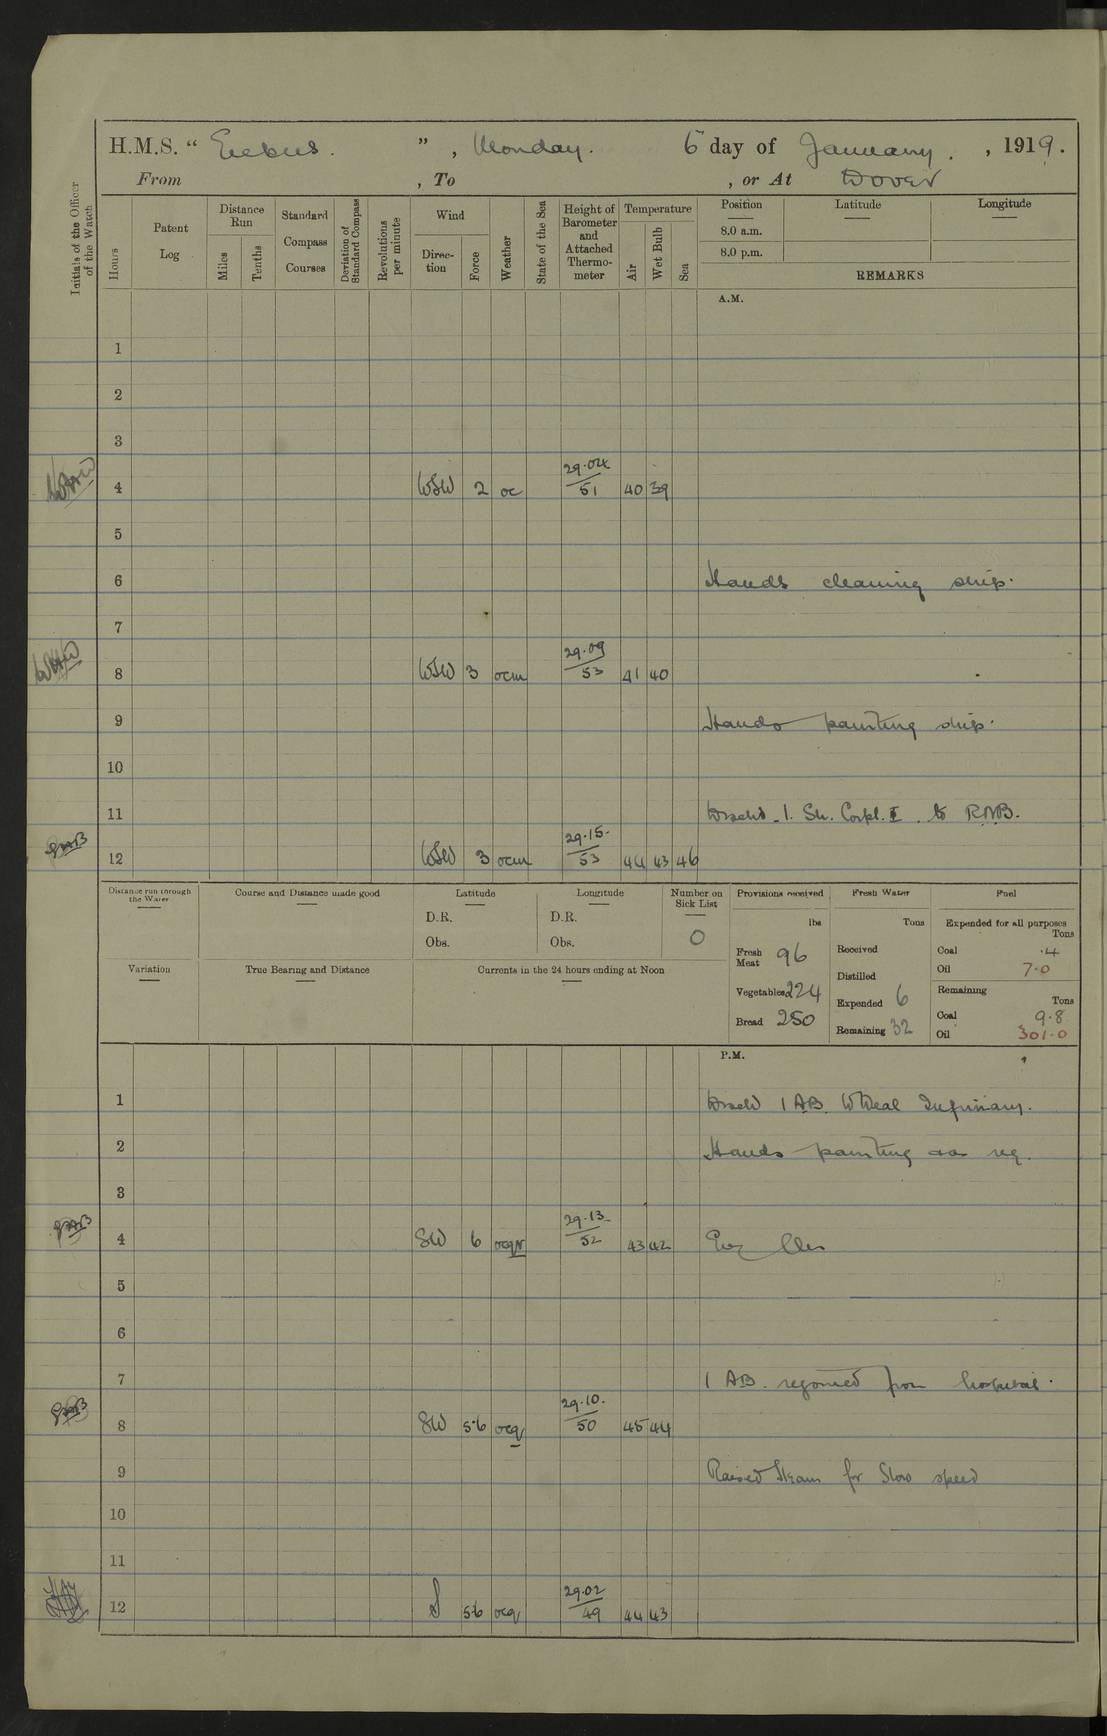 H.M.S. “ Erebus. ” , Monday. 6 day of January. , 1919.
From , To , or At Dover
Initials of the Officer of the Watch
Hours
Patent Log
Distance Run
Miles
Tenths
Standard Compass Courses
Deviation of Standard Compass
Revolutions per minute
Wind
Direction
Force
Weather
State of the Sea
Height of Barometer and Attached Thermometer
Temperature
Air
Wet Bulb
Sea
Position Latitude Longitude
8.0 a.m.
8.0 p.m.
REMARKS
A.M.
1
2
3
4 WSW 2 oc 29.04 51 40 39
5
6 Hands cleaning ship.
7
8 WSW 3 ocm 29.09 53 41 40
9 Hands painting ship.
10
11 1. Sh. Corpl. to R.N.B.
12 WSW 3 ocm 29.15 53 44 43 46
Distance run through the Water
Course and Distance made good
Latitude
D.R.
Obs.
Longitude
D.R.
Obs.
Number on Sick List
0
Variation
True Bearing and Distance
Currents in the 24 hours ending at Noon
Provisions received
lbs
Fresh Meat 96
Vegetables 224
Bread 250
Fresh Water
Tons
Received
Distilled
Expended 6
Remaining 32
Fuel
Expended for all purposes
Tons
Coal .4
Oil 7.0
Remaining
Tons
Coal 9.8
Oil 301.0
P.M.
1 1 AB. Infirmary.
2 Hands painting as req.
3
4 SW 6 ocqr 29.13 52 43 42
5
6
7 1 AB. rejoined from hospital.
8 SW 5.6 ocq 29.10 50 45 44
9 Raised Steam for Slow speed
10
11
12 S 5.6 ocq 29.02 49 44 43